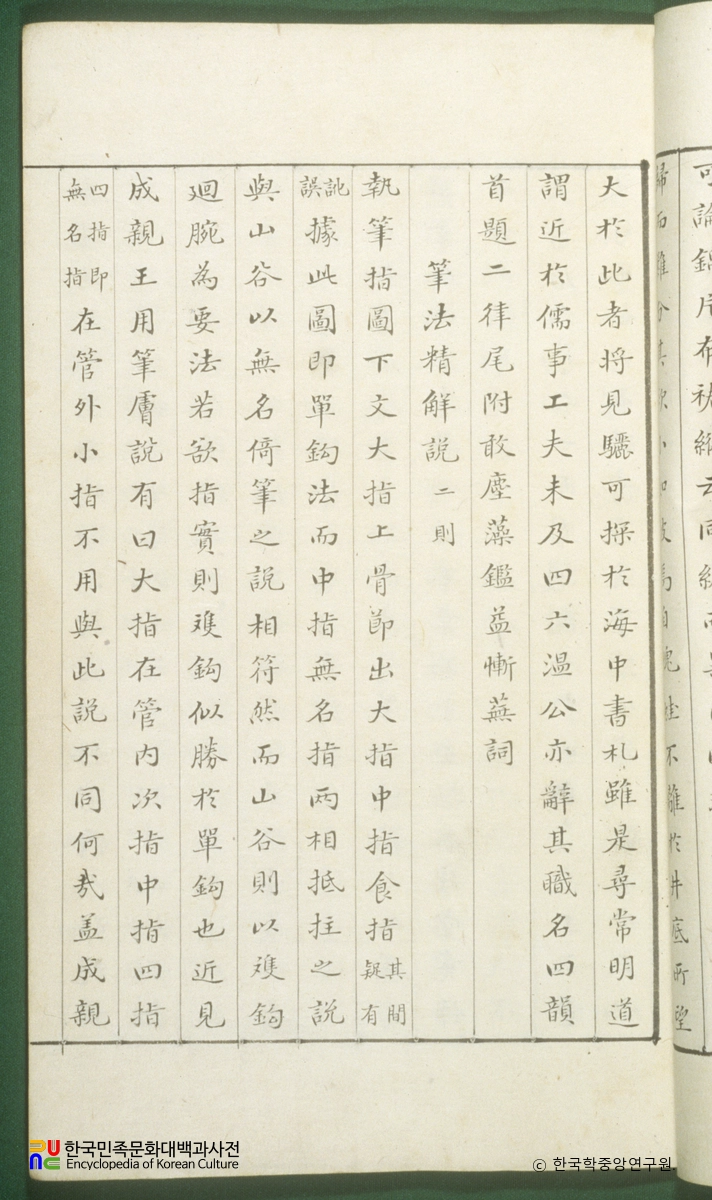 大於此者將見驪可探於海中書札雖是尋常明道
謂近於儒事工夫未及四六溫公亦辭其職名四韻
首題二律尾附敢塵藻鑑益慚蕪詞
筆法精解說 二則
執筆指圖下文大指上骨節出大指中指食指 其間疑有
訛誤 據此圖即單鈎法而中指無名指兩相抵拄之說
與山谷以無名倚筆之說相符然而山谷則以䉶鈎
廻腕為要法若欲指實則䉶鈎似勝於單鈎也近見
成親王用筆膚說有曰大指在管內次指中指四指
四指即無名指 在管外小指不用與此說不同何㢤盖成親
한국민족문화대백과사전
Encyclopedia of Korean Culture
© 한국학중앙연구원